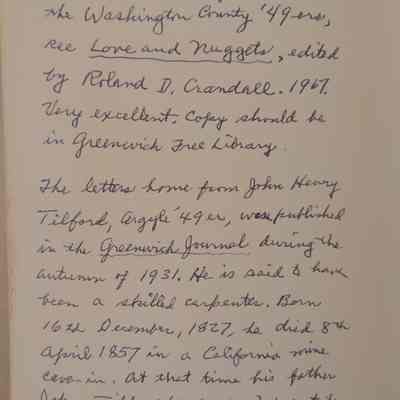 the Washington County '49ers,
see Love and Nuggets, edited
by Roland D. Crandall. 1967.
Very excellent. Copy should be
in Greenwich Free Library.
The letters home from John Henry
Tilford, Argyle '49er, were published
in the Greenwich Journal during the
autumn of 1931. He is said to have
been a skilled carpenter. Born
16th December, 1827, he died 8th
April 1857 in a California mine
cave-in. At that time his father